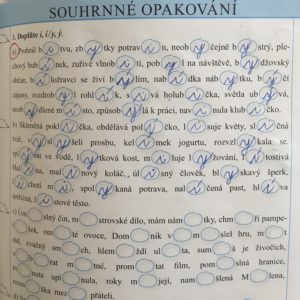 SOUHRNNÉ OPAKOVÁNÍ
1. Doplňte i, í / y, ý.
a) Probrál b i tvu, zb y tky potrav i n, neob y čejně b y strý, ple-
chový bub í nek, zuřivé vlnob i tí, pob y l na návštěvě, b y džovský
občan, b ložravci se živí b y lím, nab í dka náb y tku, b y čí
zápasy, rozdrob i l rohl í k, s i vá holub i čka, světla ub ý vá,
neob y dlené m í sto, způsob y lá k práci, nav i nula klub í čko.
b) Skleněná pokl i čka, obdělává pol í čko, l i suje květy, sl i čná
tvář, vysl y šeli prosbu, kel í mek jogurtu, rozvzl y kala se,
pl vat ve vodě, l ý tková kost, m i luje l y žování, l i tostivá
ž na, mal i nový koláč, ú sl ý skavý šperk,
l chotí m , spol y kaná potrava, nal í čená past, hl i va
ústřičná, l i stové těsto.
c) Um slný čin, m strovské dílo, mám nám tky, chm ří pampe-
šek, om té ovoce, Dom ník v m slel hru, m t
tád, zvučný sm ch, hlem ždí ul ta, sum š je živočich,
rat m tné, prom tat film, pom slná hranice,
nuta upl nula, roky m její, nam šlená M lena,
m ška mez přáteli.